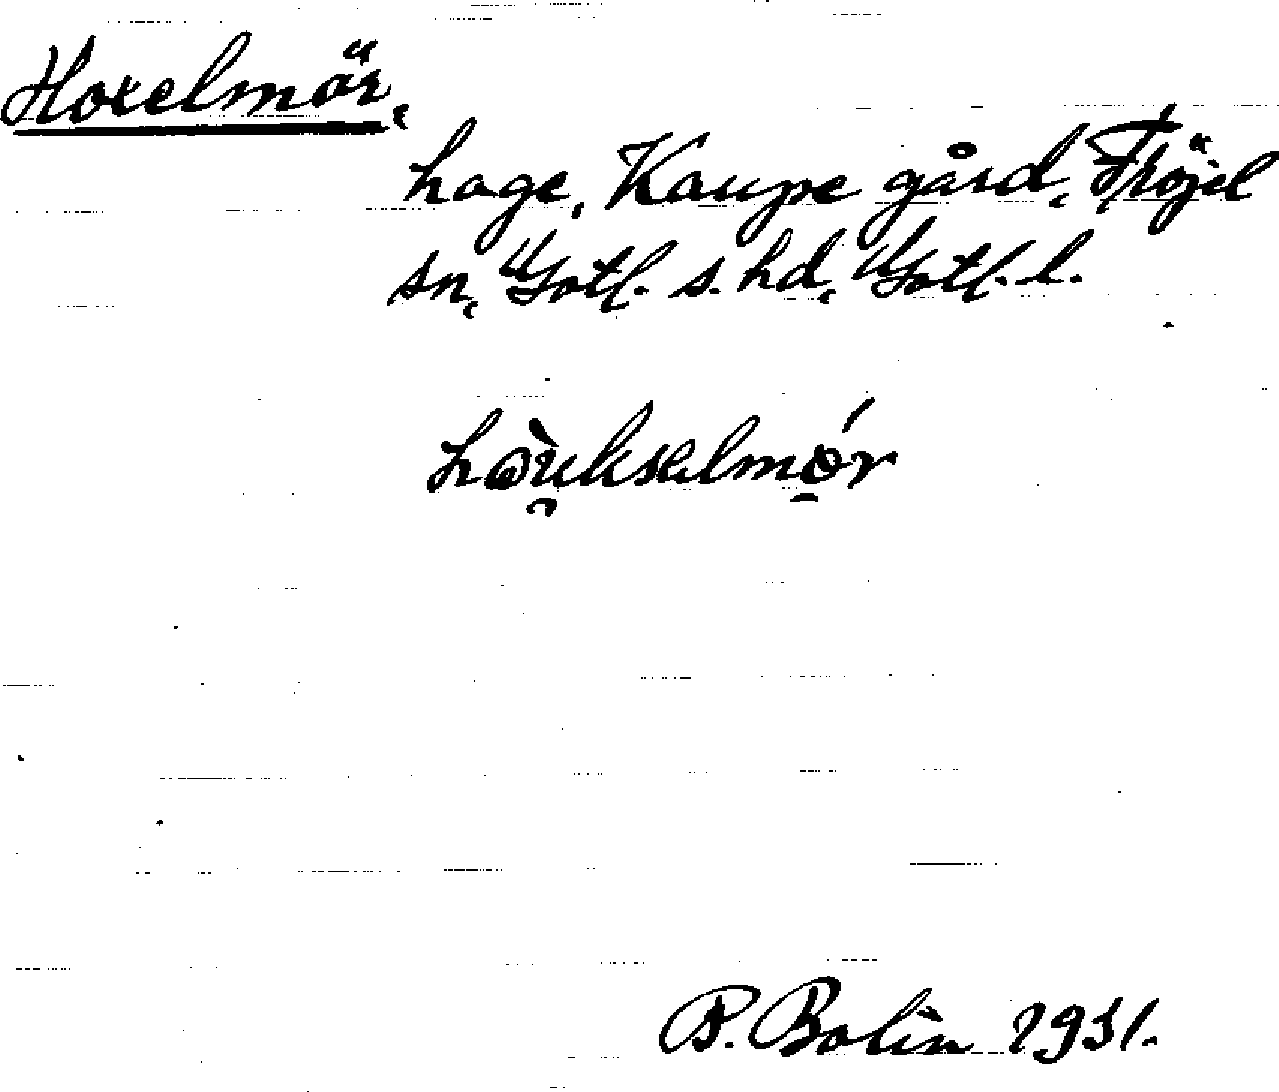 Hoxelmör,
hage, Kaupe gård, Fröjel
sn, Gotl. s. hd, Gotl. l.
P. Bolin 1931.